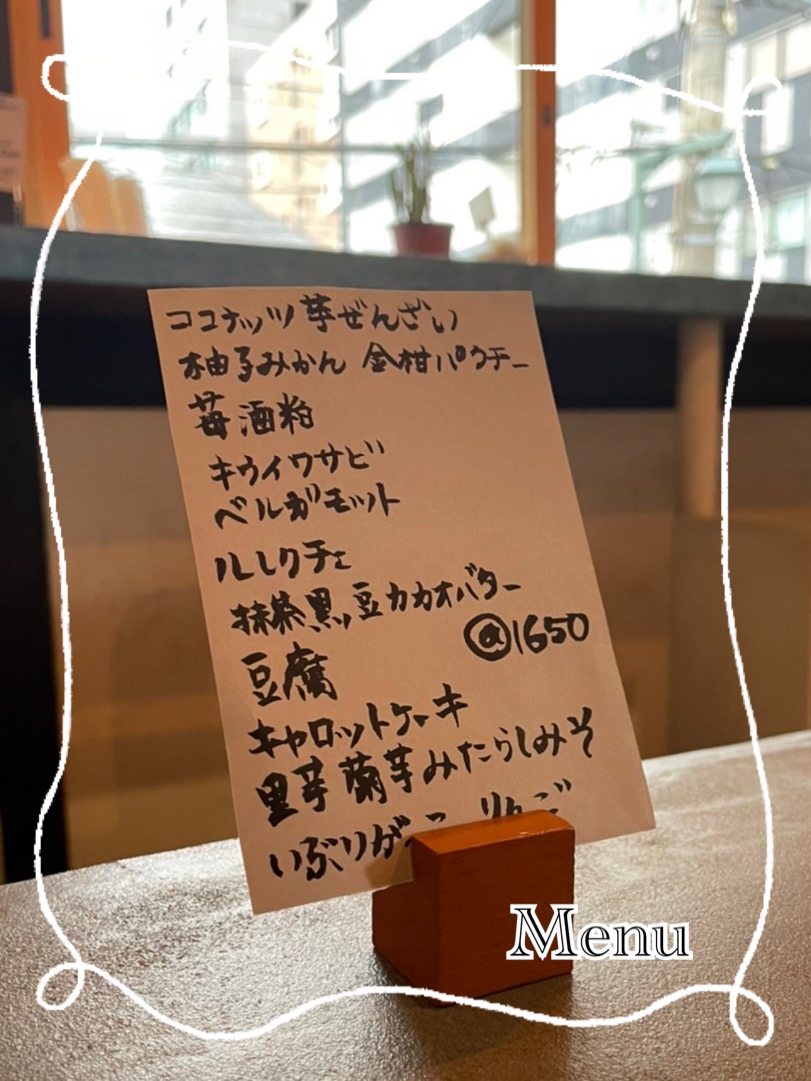 ココナッツ芋ぜんざい
柚子みかん 金柑パクチー
苺酒粕
キウイワサビ
ベルガモット
ルレクチェ
抹茶黒豆カカオバター
@1650
豆腐
キャロットケーキ
里芋菊芋みたらしみそ
いぶりが りんご
Menu